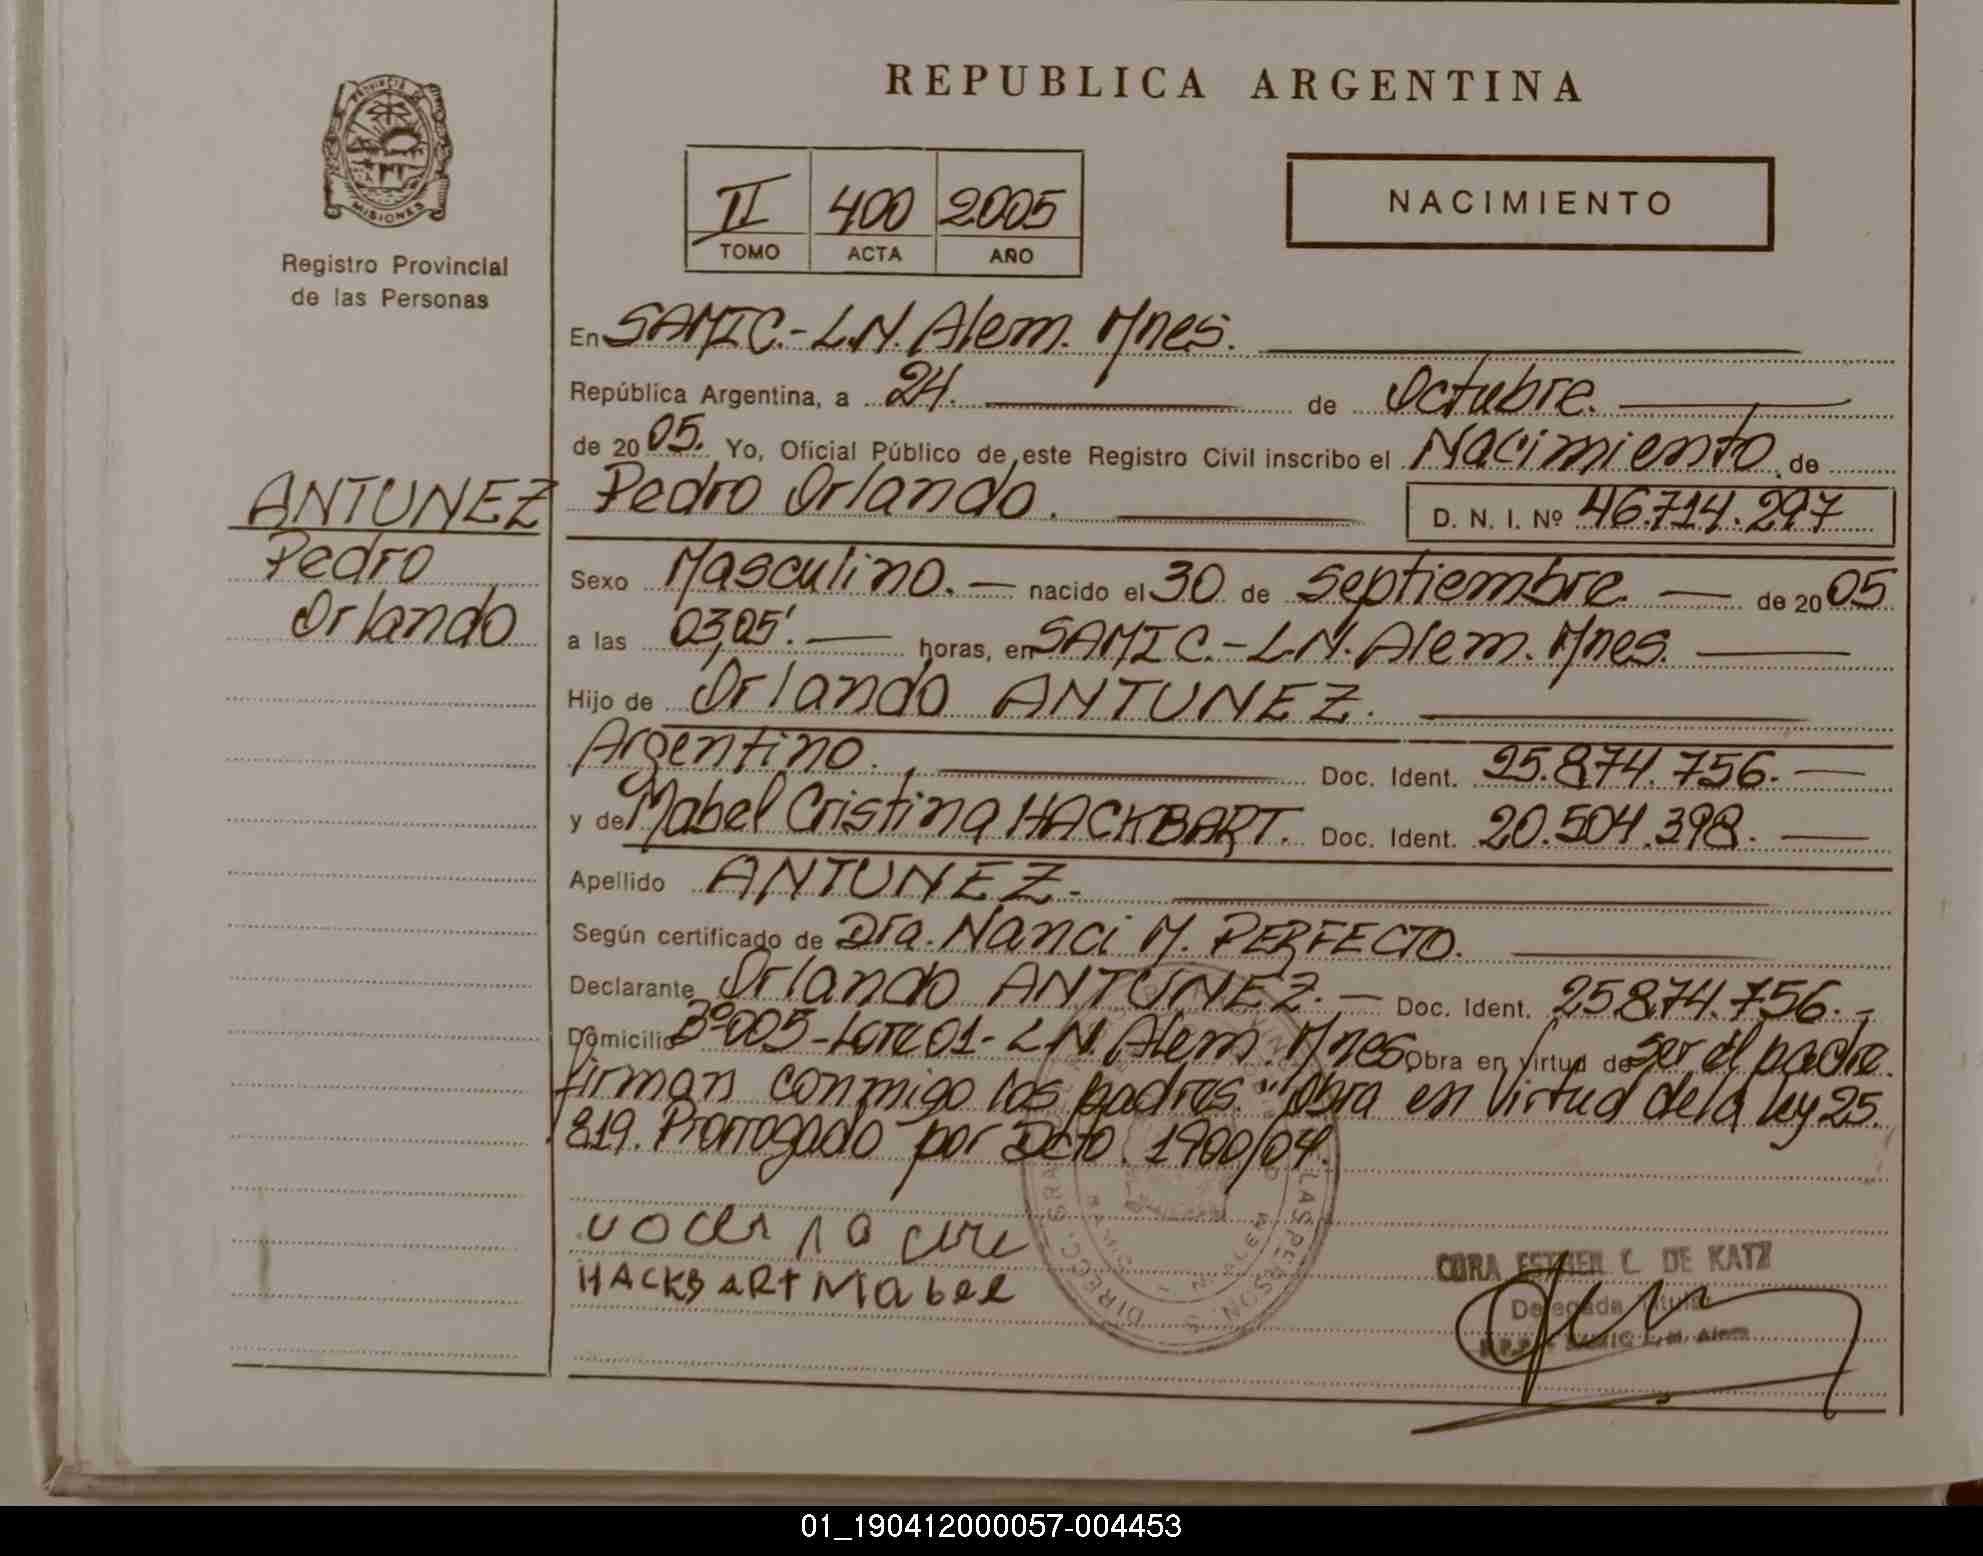 REPUBLICA ARGENTINA
PROVINCIA DE MISIONES
Registro Provincial
de las Personas
II 400 2005
TOMO ACTA AÑO
NACIMIENTO
En SAMIC.- L.N. Alem. Mnes.
República Argentina, a 24. de Octubre.
de 2005. Yo, Oficial Público de este Registro Civil inscribo el Nacimiento de
ANTUNEZ
Pedro
Orlando
Pedro Orlando. D. N. I. Nº 46.714.297
Sexo Masculino. nacido el 30 de Septiembre. de 2005
a las 03,05'. horas, en SAMIC.- L.N. Alem. Mnes.
Hijo de Orlando ANTUNEZ.
Argentino. Doc. Ident. 25.874.756.
y de Mabel Cristina HACKBART. Doc. Ident. 20.504.398.
Apellido ANTUNEZ.-
Según certificado de Dra. Nanci M. PERFECTO.
Declarante Orlando ANTUNEZ. Doc. Ident. 25874.756.-
Domicilio Bº 005-Lote 01- L.N. Alem. Mnes Obra en virtud de Ser el padre.
firman conmigo los padres. "Obra en Virtud de la ley 25.
819. Prorrogado por Dcto. 1900/04.
HACKBARt Mabel
CORA ESTHER C. DE KATZ
Delegada Titular
R.P.P. SAMIC L.N. Alem
01_190412000057-004453